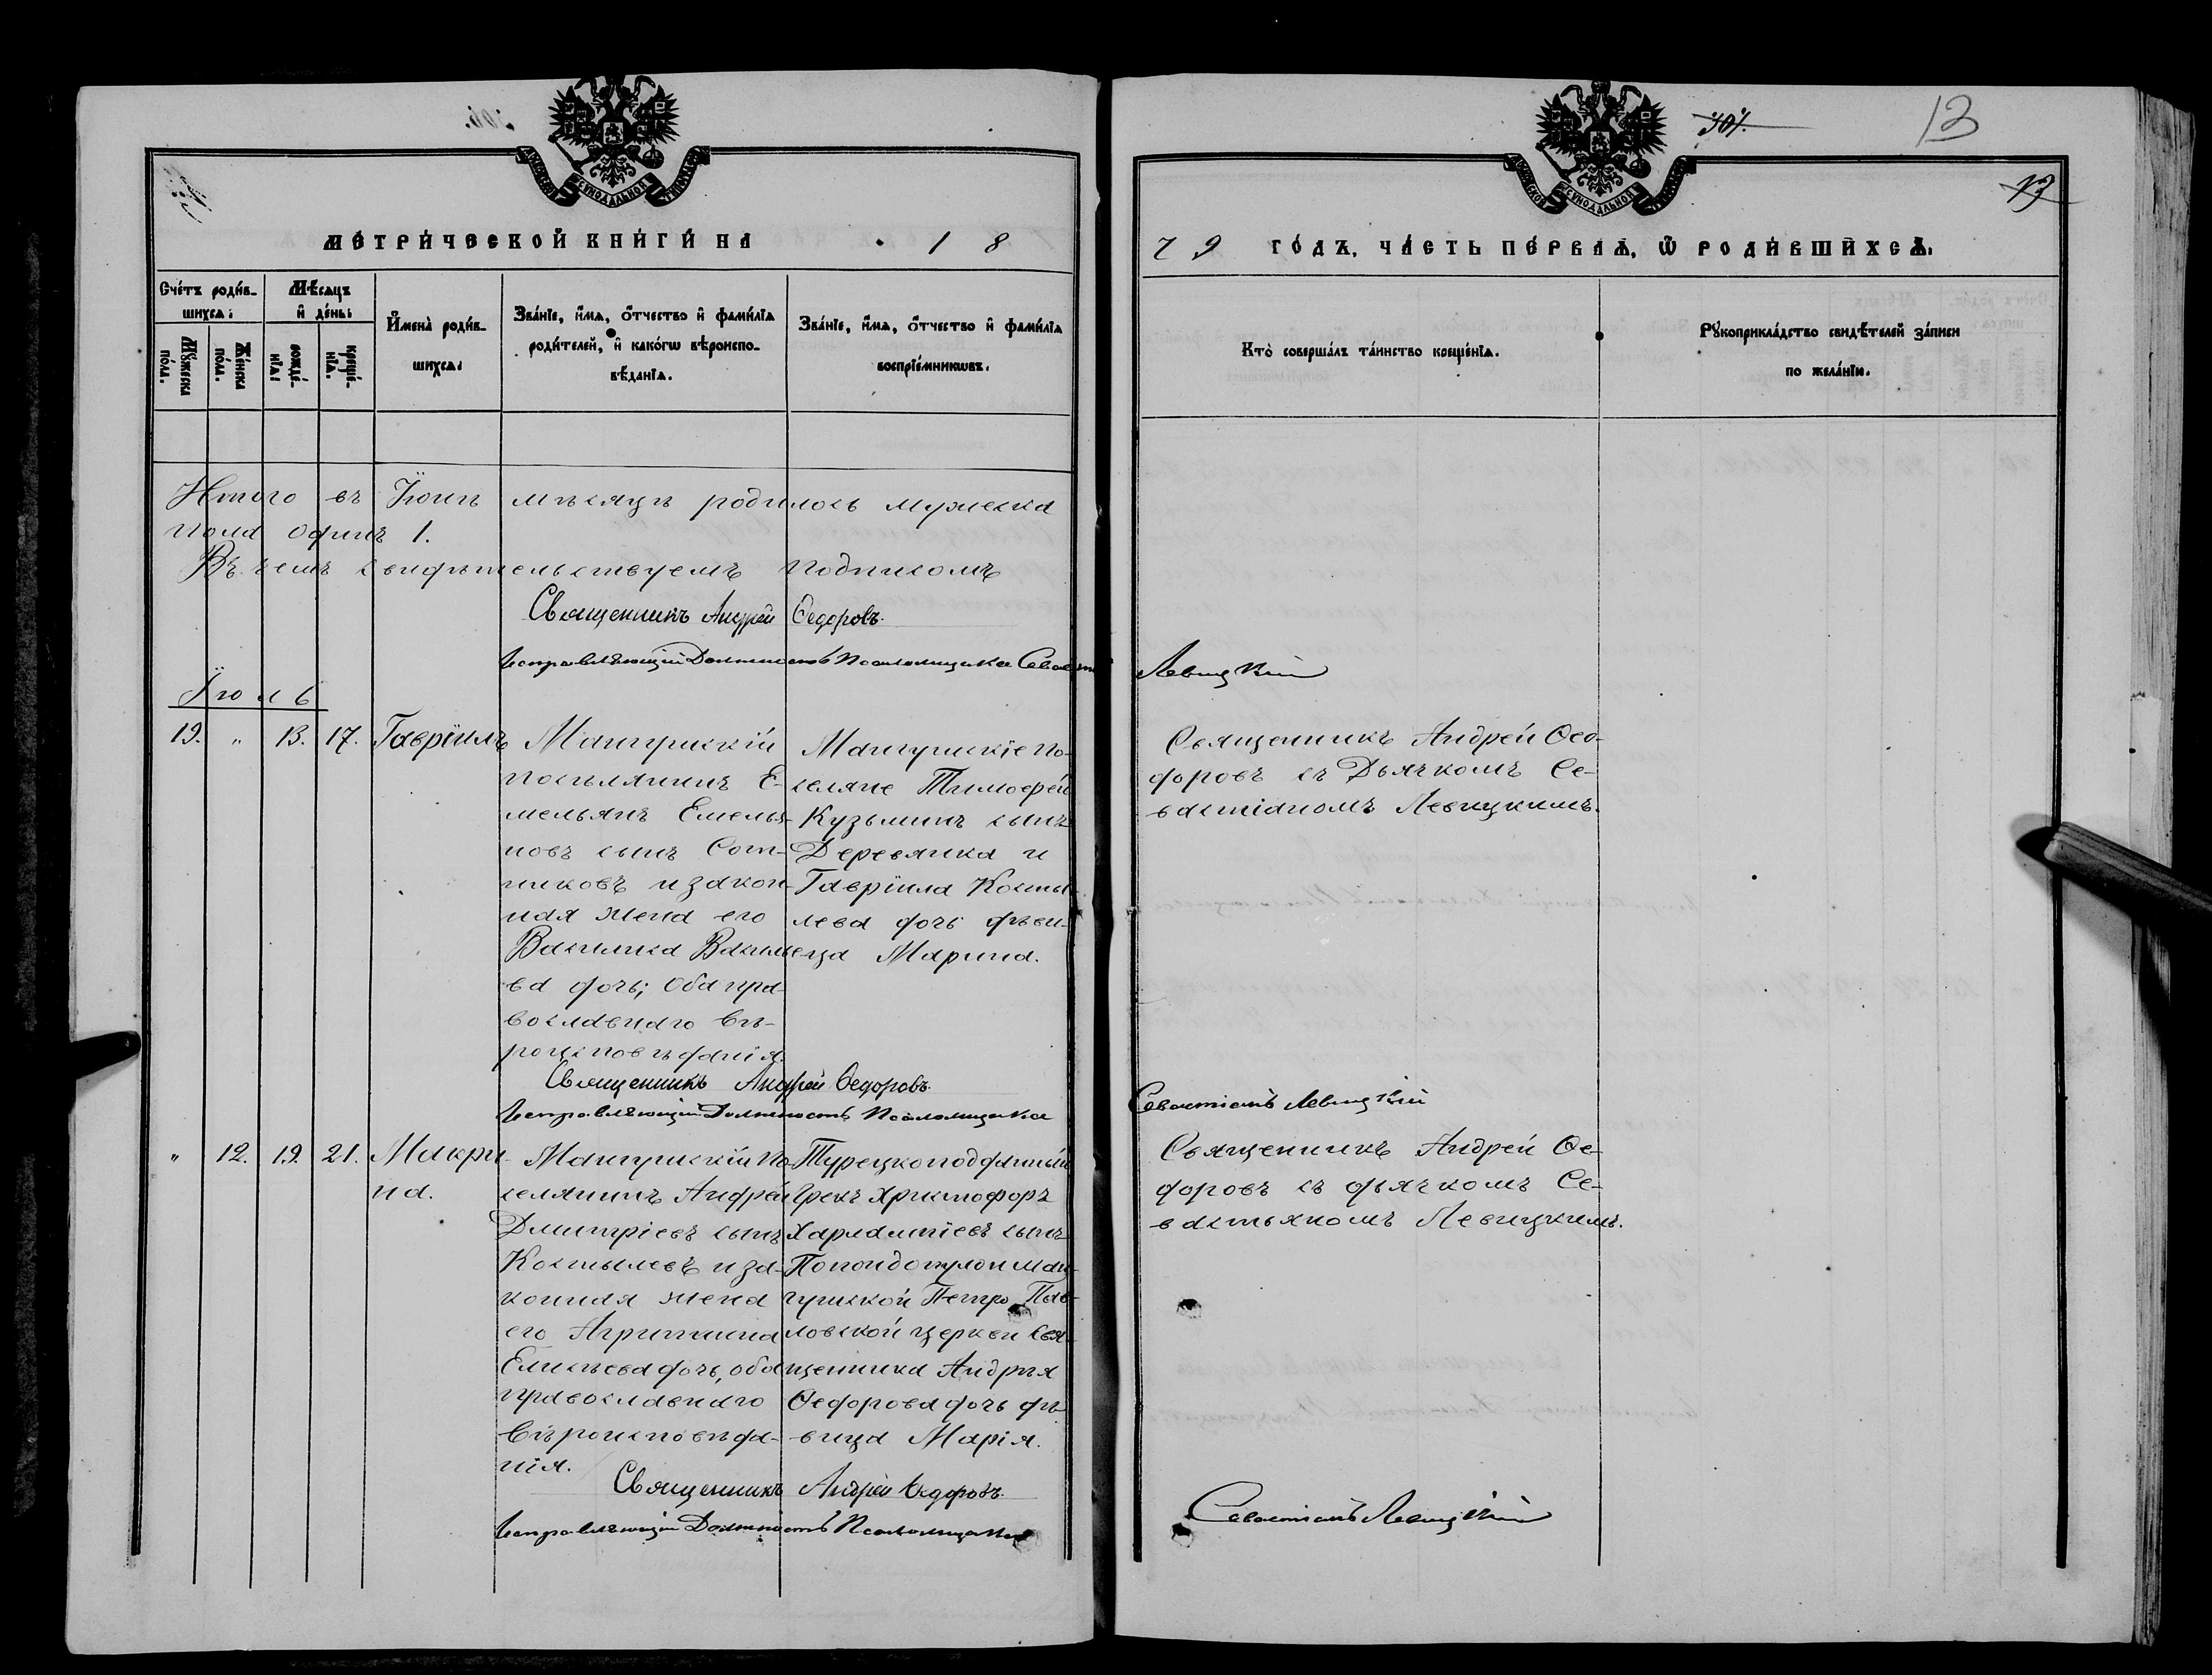 307.
13
13
МЕТРИЧЕСКОЙ КНИГИ НА 18
79 ГОДЪ, ЧАСТЬ ПЕРВАЯ, Ѿ РОДИВШИХСЯ.
Счетъ родив-
шихся:
Мѣсяцъ
и день:
Мужеска
пола.
Женска
пола.
рожде-
нія:
креще-
нія.
Имена родив-
шихся.
Званіе, имя, отчество и фамилія
родителей, и какогѡ вѣроиспо-
вѣданія.
Званіе, имя, отчество и фамилія
воспріемникωвъ.
Кто совершалъ таинство крещенія.
Рукоприкладство свидѣтелей записи
по желанію.
Итого въ Їюнѣ мѣсяцѣ родилось мужеска
пола одинъ 1.
Въ чемъ свидѣтельствуемъ подписомъ
Священникъ Андрей Ѳедоровъ.
Исправляющій Должность Псаломщика Севасті
Левицкій
Їюль
19. " 13. 17. Гавріилъ
Мангушскій
посѣлянинъ Е-
мельянъ Емелья-
новъ сынъ Сот-
никовъ и закон-
ная жена его
Василиса Василь-
ва дочь; оба пра-
вославнаго вѣ-
роисповѣданія.
Мангушскіе по-
селяне Тимофей
Кузьминъ сынъ
Деревянка и
Гавріила Косты-
лева дочь дѣви-
ца Марина.
Священникъ Андрей Ѳео-
доровъ съ Дьячкомъ Се-
вастіаномъ Левицкимъ.
Священникъ Андрей Ѳедоровъ.
Исправляющій Должность Псаломщика
Севастіанъ Левицкій
" 12. 19. 21. Макри-
на.
Мангушскій по-
селянинъ Андрей
Дмитріевъ сынъ
Костылевъ и за-
конная жена
его Агрипина
Елисѣева дочь, оба
православнаго
вѣроисповѣда-
нія.
Турецкоподданный
Грекъ Христофоръ
Харлампіевъ сынъ
Попондопулои Ман-
гушской Петро Пав-
ловской церкви свя-
щенника Андрея
Ѳедорова дочь дѣ-
вица Марія.
Священникъ Андрей Ѳе-
доровъ съ дьячкомъ Се-
вастьяномъ Левицкимъ.
Священникъ Андрей Ѳедоровъ.
Исправляющій Должность Псаломщика
Севастіанъ Левицкій